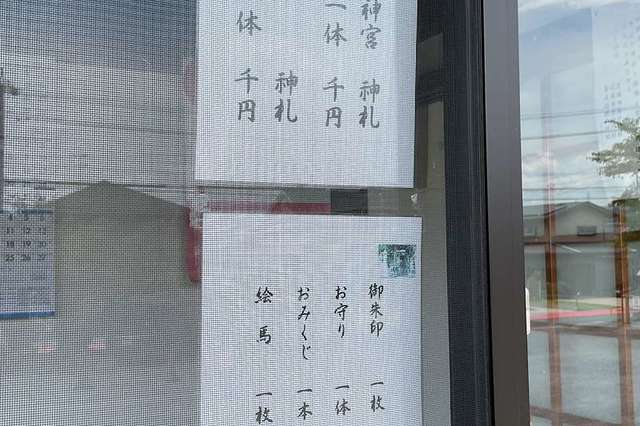 神宮 神札
一体 千円
神札
体 千円
御朱印 一枚
お守り 一体
おみくじ 一本
絵馬 一枚
11 12 13
18 19 20
25 26 27